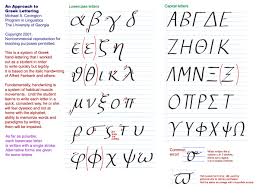 An Approach to
Greek Lettering
Michael A. Covington
Program in Linguistics
The University of Georgia
Copyright 2001.
Noncommercial reproduction for
teaching purposes permitted.
This is a system of Greek
hand-lettering that I worked
out as a student in order
to write quickly but legibly.
It is based on the italic handwriting
of Alfred Fairbank and others.
Fundamentally, handwriting is
a system of habitual muscle
movements, and the student
needs to learn to write each
letter in a quick, consistent
As far as possible,
each letter
is written with a single stroke.
Alternative forms are given
for some letters.
Lowercase letters
α β γ δ
ε ζ η θ
ι κ λ
μ ν ξ ο π
ρ σ ς τ υ
φ φ χ ψ ω
Capital letters
Α Β Γ Δ Ε
Ζ Η Θ Ι Κ
Λ Μ Ν Ξ
Ο Π Ρ Σ Τ
Υ Υ Φ Χ Ψ Ω
Common
error: